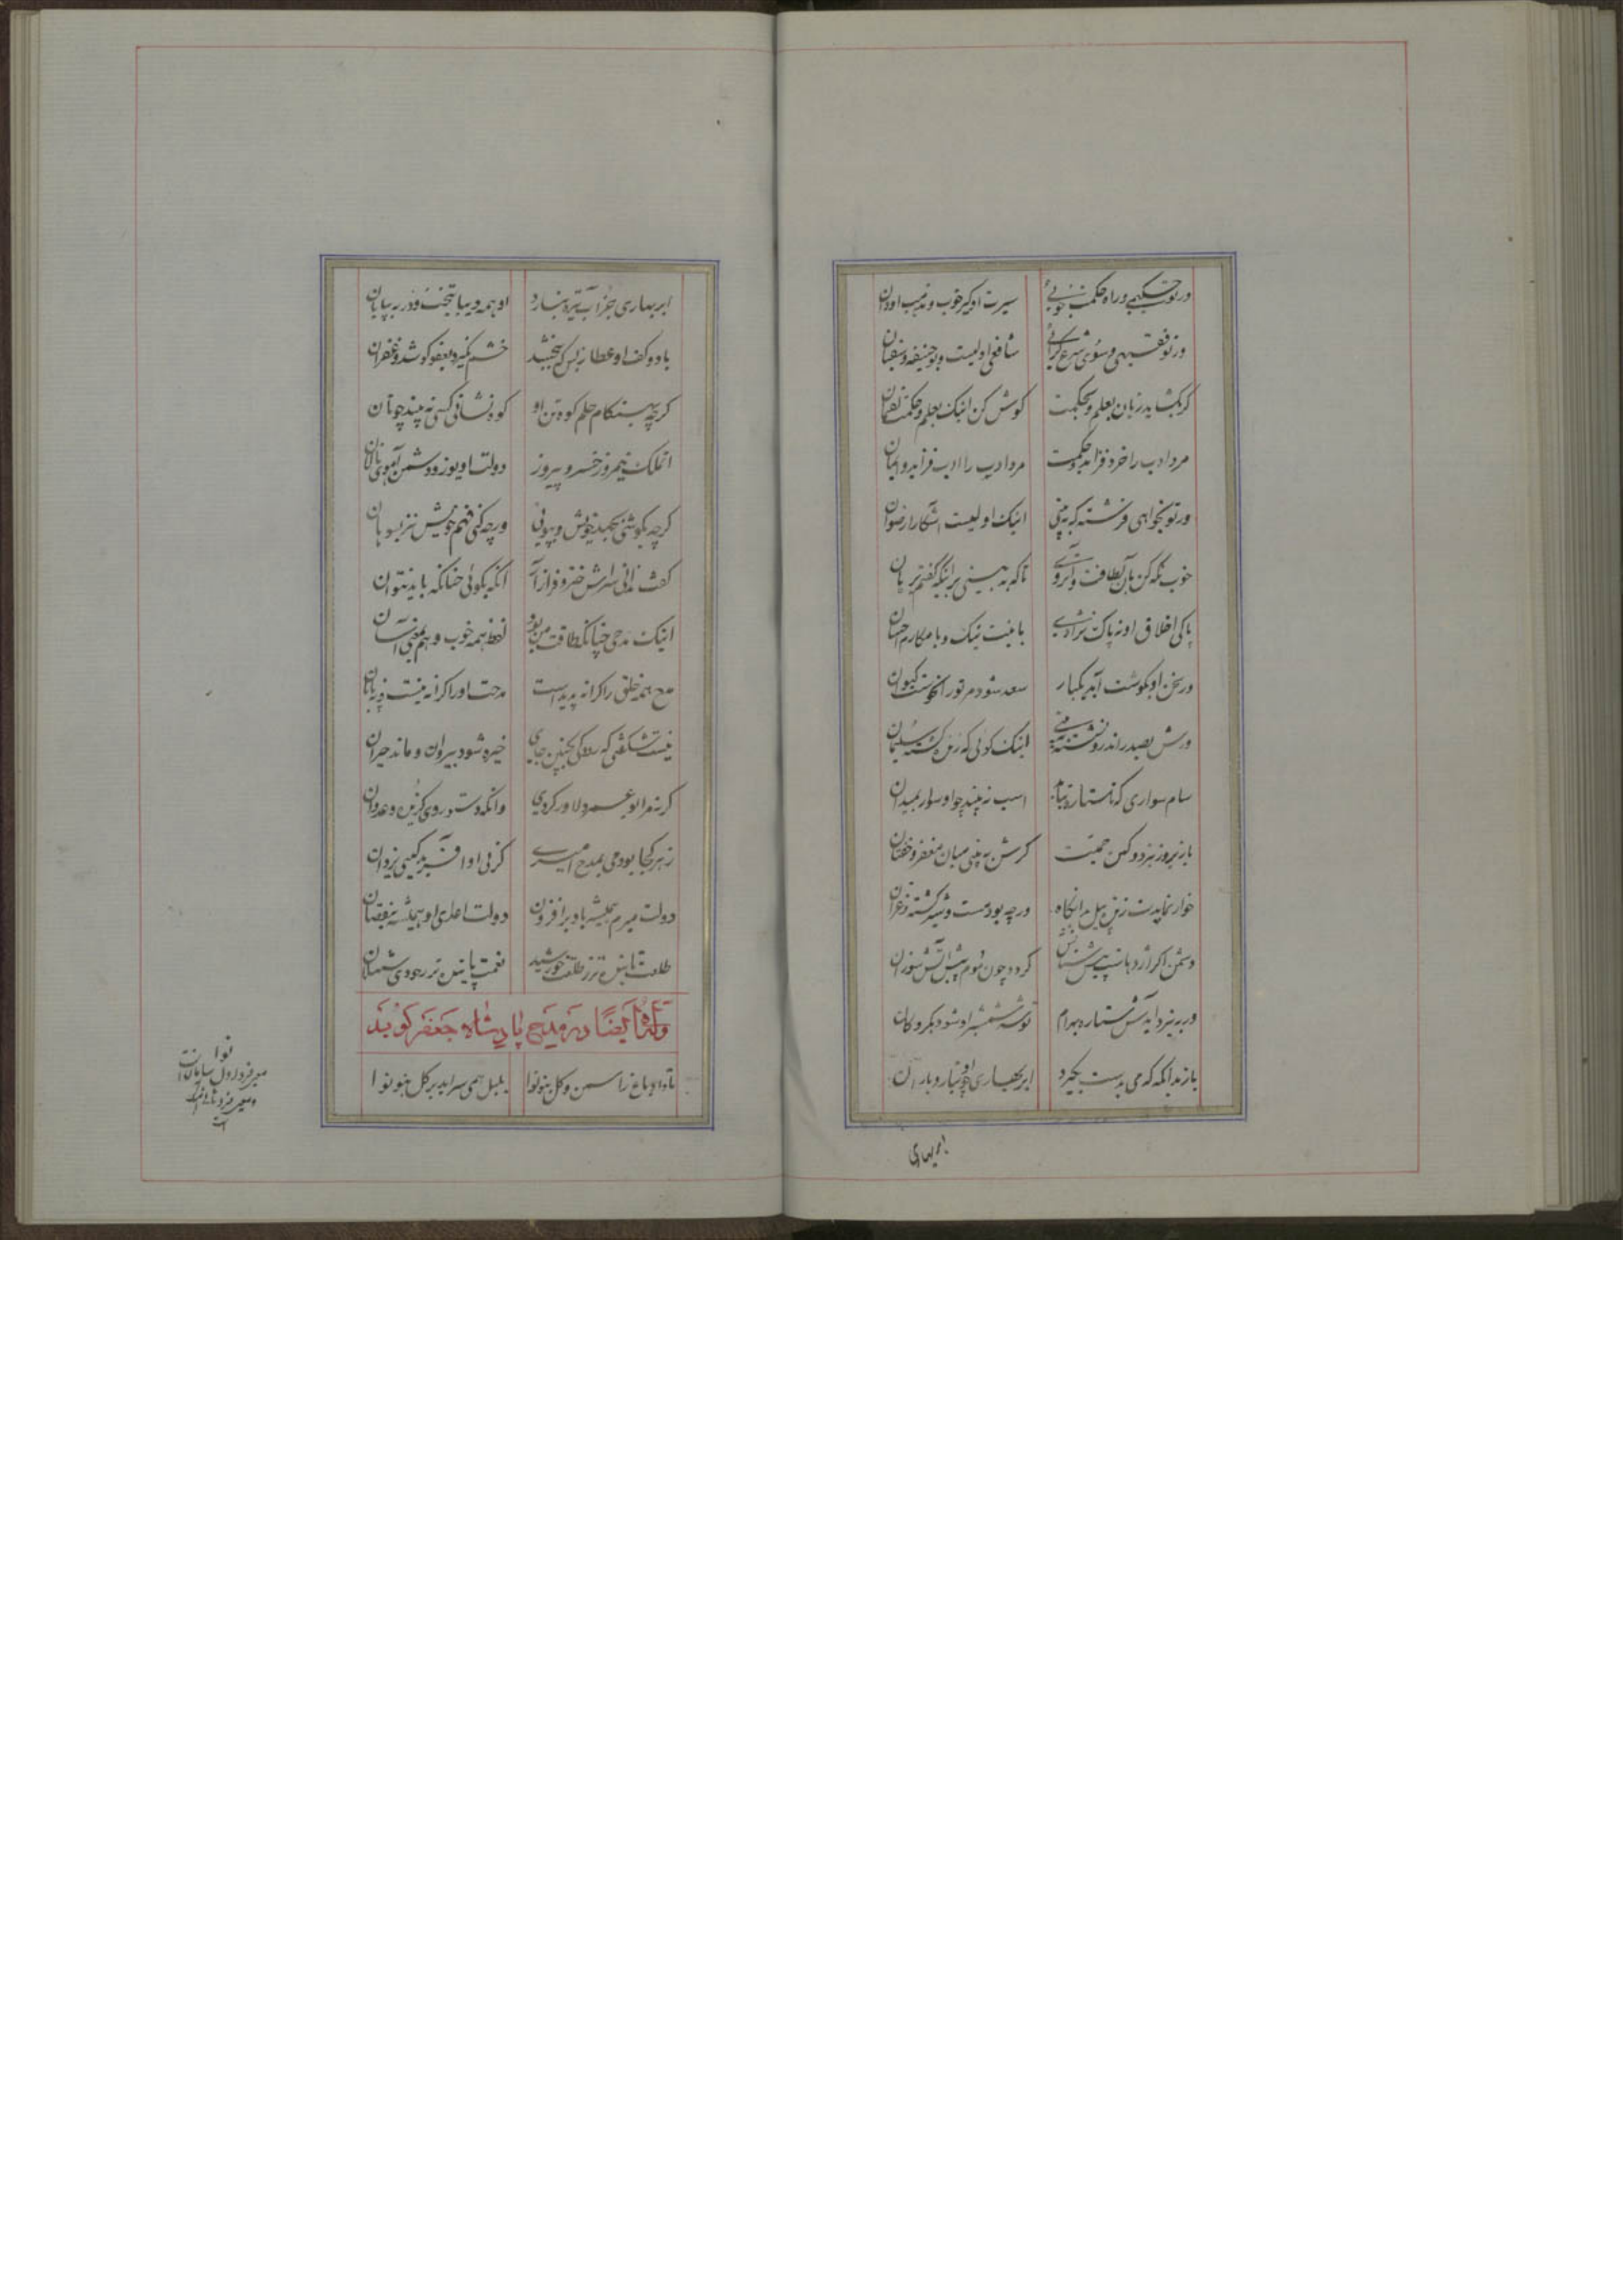 ور تو حکیمی و راه حکمت جوئی سیرت او گیر خوب و مذهب او دان
ور تو فقیهی و سوی شرع گرائی شافعی اولیت و بوحنیفه و سفیان
کر بگشاید زبان بعلم و بحکمت کوش کن اینک بعلم و حکمت لقمان
مرد ادب را خرد فزاید و حکمت مرد ادب را ادب فزاید و ایمان
ور تو بخواهی فرشته که به بینی اینک اولیست آشکارا رضوان
خوب نکه کن بان لطافت و آنروی تا که به بینی برانیکه کفتم برهان
پاکی اخلاق او نه پاک نژادی با نیت نیک و با مکارم احسان
ور سخن او بکوشت آید یکبار سعد شود مر تو را نحوست کیوان
ورش بصدر اندرون نشسته به بینی اینک کوئی که زنده کشته سلیمان
سام سواری که تا ستاره بتابد اسب نه بیند چو او سوار بمیدان
باز بروز نبرد و کین حمیت کرش به بینی میان مغفر و خفتان
خوار نمایدت زنده پیل بدانکاه ورچه بود مست و تیز کشته و غران
دشمن اگر اژدهاست پیش سنانش کردد چون موم پیش آتش سوزان
ور بنبرد آیدش ستاره بهرام توشه شمشیر او شود بکروکان
باز بدانکه که می بدست بگیرد ابر بهاری چو او نبارد باران
ابر بهاری
ابر بهاری جز آب تیره نبارد او همه دیبا بتخت و زر به بپایان
با دو کف او عطا ز بس که ببخشد خشم نگیرد بعفو کوشد و غفران
کرچه بهنکام حلم کوه تن او کوه نشانی کسی نه بیند چونان
آن ملک نیمروز خسرو پیروز دولت او یوز و دشمن آهوی نالان
کرچه بکوشی بجهد خویش و بپوئی ورچه کنی فهم خویش تیز بسوهان
کفت ندانی سزاش خیز و فراز آر آنکه بکوئی چنانکه باید نتوان
اینک مدحی چنانکه طاقت من بود لفظ همه خوب و هم بمعنی آسان
مدح همه خلق را کرانه پدیدست مدحت او را کرانه نیست و نه پایان
نیست شگفتی که رودکی بچنین جای خیره شود بیروان و ماند حیران
کرنه مرا بو عمر دلاور کردی وانکه دستوری گزیده عدنان
زهره کجا بودمی بمدح امیری کز پی او آفرید کیتی یزدان
دولت میرم همیشه باد برافزون دولت اعدای او همیشه بنقصان
طلعت تابنده تر ز طلعت خورشید نعمت پاینده تر ز جودی و ثهلان
وله ایضا در مدح پادشاه جعفر کوید
تا داد باغ را سمن و کل بنونوا بلبل همی سراید بر کل بنونوا
نوا